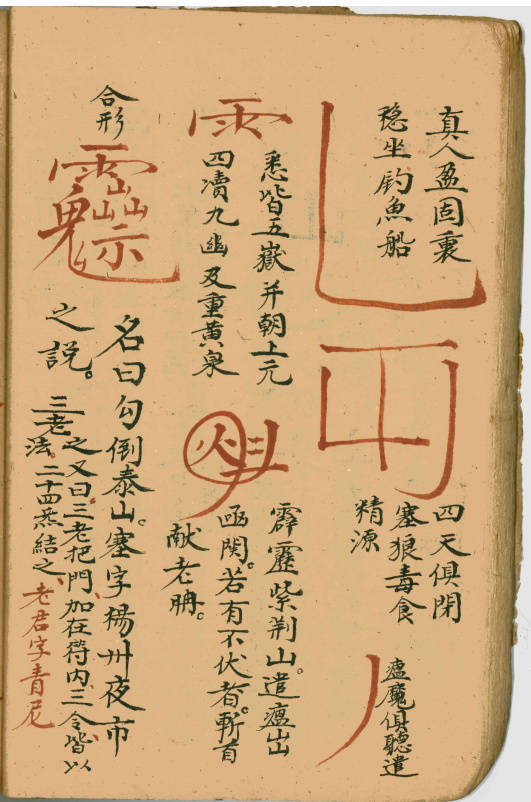 真人盈固裏
穏坐釣魚船
四天俱閉
塞狼毒食
精源
瘟魔俱聽遣
悉皆五嶽并朝上元
四凟九幽及重黄泉
霹靂紫荆山。遣瘟出
凾関。若有不伏者。斬首
献老
合形
名曰勾倒泰山。塞字楊州夜市
之説。
之又曰三老把門、加在符内三令皆以
三老法。二十四炁結之、
老君字青尼